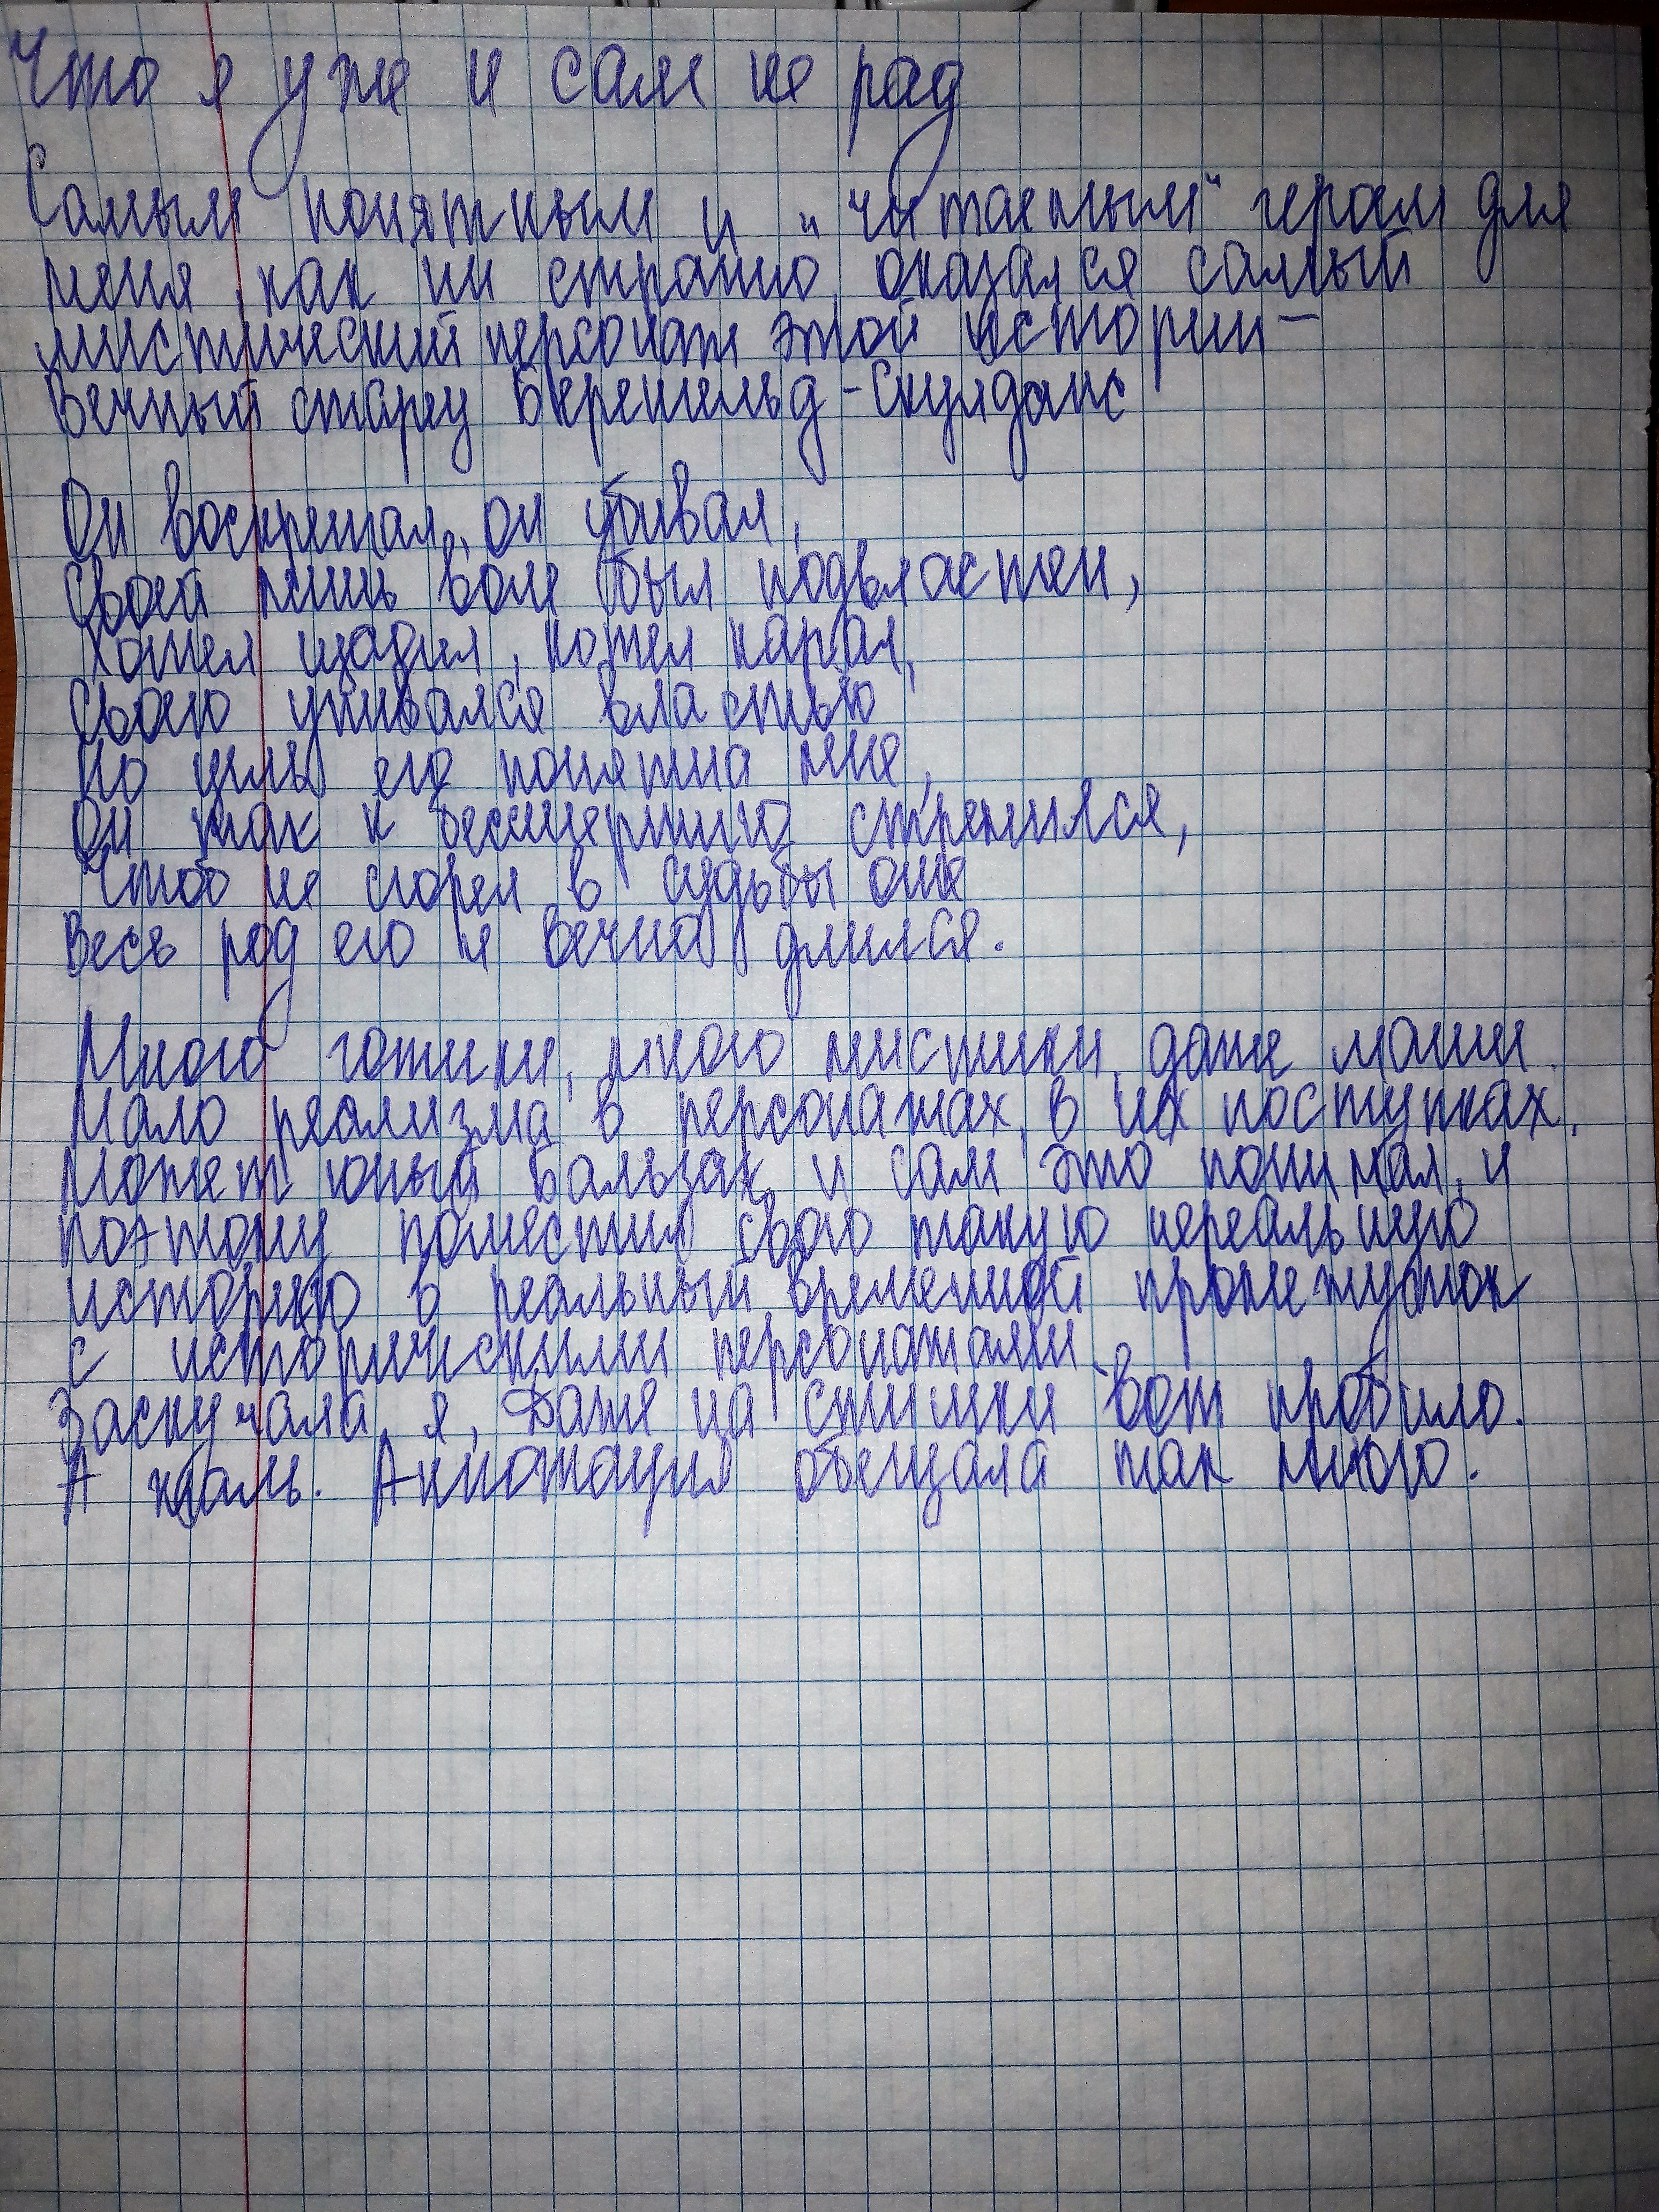 Что я уже и сам не рад
Самым понятным и "читаемым" героем для
меня, как ни странно, оказался самый
мистический персонаж этой истории –
Вечный старец Берингельд-Скулданс
Он воскрешал, он убивал,
Своей лишь воле был подвластен,
Хотел щадил, хотел карал,
Своею упивался властью
Но цель его понятна мне,
Он так к бессмертию стремился,
Чтоб не сгорел в судьбы огне
Весь род его и вечно длился.
Много готики, много мистики, даже магии.
Мало реализма в персонажах, в их поступках.
Может юный Бальзак и сам это понимал, и
поэтому поместил свою такую нереальную
историю в реальный временной промежуток
с историческими персонажами.
Заскучала я, Даже на стишки вот пробило.
А жаль. Аннотация обещала так много.